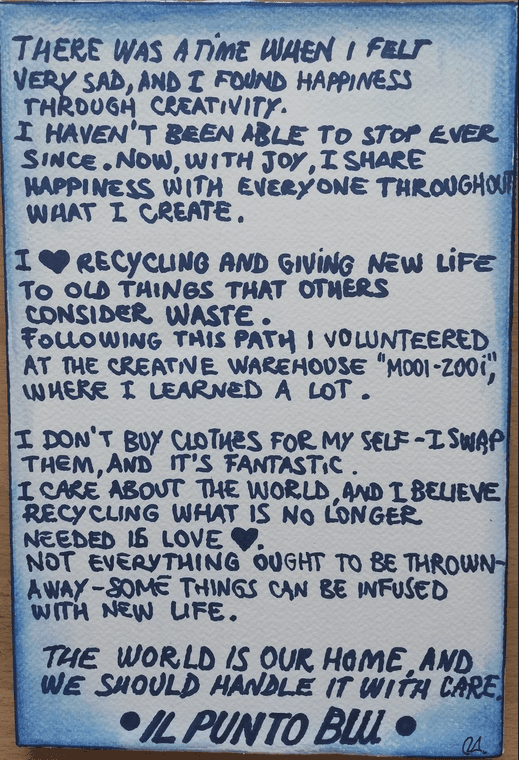 THERE WAS A TIME WHEN I FELT
VERY SAD, AND I FOUND HAPPINESS
THROUGH CREATIVITY.
I HAVEN'T BEEN ABLE TO STOP EVER
SINCE. NOW, WITH JOY, I SHARE
HAPPINESS WITH EVERYONE THROUGHOUT
WHAT I CREATE.
I ♥ RECYCLING AND GIVING NEW LIFE
TO OLD THINGS THAT OTHERS
CONSIDER WASTE.
FOLLOWING THIS PATH I VOLUNTEERED
AT THE CREATIVE WAREHOUSE "MOOI-ZOOI",
WHERE I LEARNED A LOT.
I DON'T BUY CLOTHES FOR MY SELF - I SWAP
THEM, AND IT'S FANTASTIC.
I CARE ABOUT THE WORLD, AND I BELIEVE
RECYCLING WHAT IS NO LONGER
NEEDED IS LOVE ♥.
NOT EVERYTHING OUGHT TO BE THROWN-
AWAY - SOME THINGS CAN BE INFUSED
WITH NEW LIFE.
THE WORLD IS OUR HOME, AND
WE SHOULD HANDLE IT WITH CARE.
• IL PUNTO BLU •